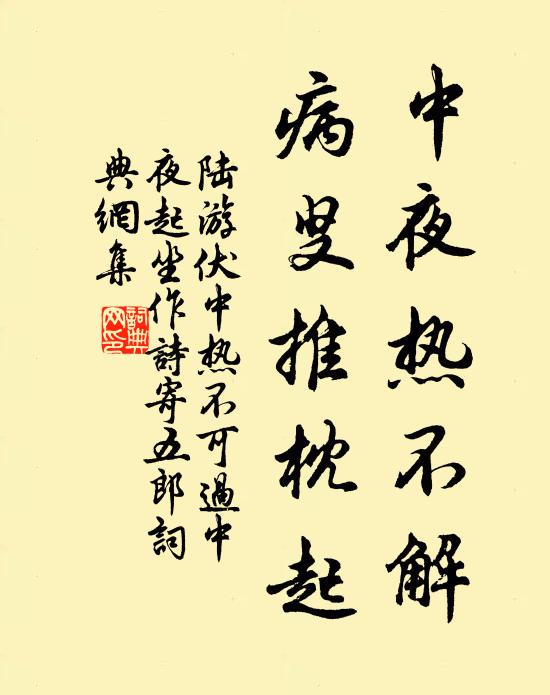 中夜热不解
病叟推枕起
陆游伏中热不可過中
夜起坐作詩寄五郎詞
典網集
詞典
网印